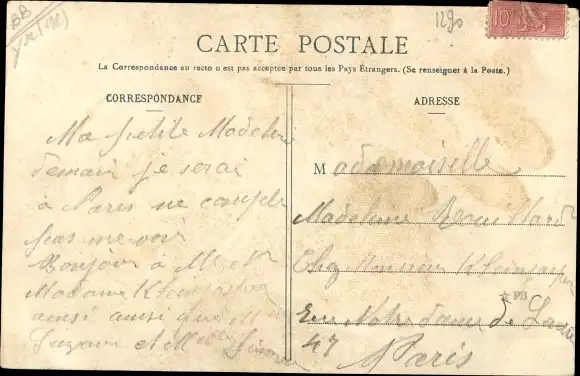 BB
1290
10
CARTE POSTALE
La Correspondance au recto n'est pas acceptée par tous les Pays Étrangers. (Se renseigner à la Poste.)
CORRESPONDANCE
Ma petite Madeleine
demain je serai
à Paris ne compte
pas me voir
Bonjour à Mr et
Madame
ainsi ainsi que Melle
Suzanne et Melle Simone
ADRESSE
Mademoiselle
Madeleine
Chez Monsieur
PB
Rue Notre dame de
47
Paris